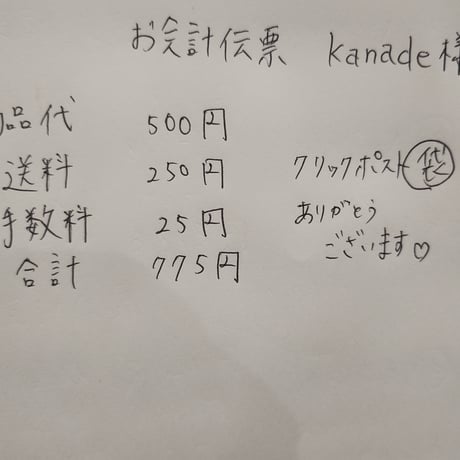 お会計伝票 kanade様
品代 500円
送料 250円 クリックポスト 袋
手数料 25円 ありがとう
合計 775円 ございます♡